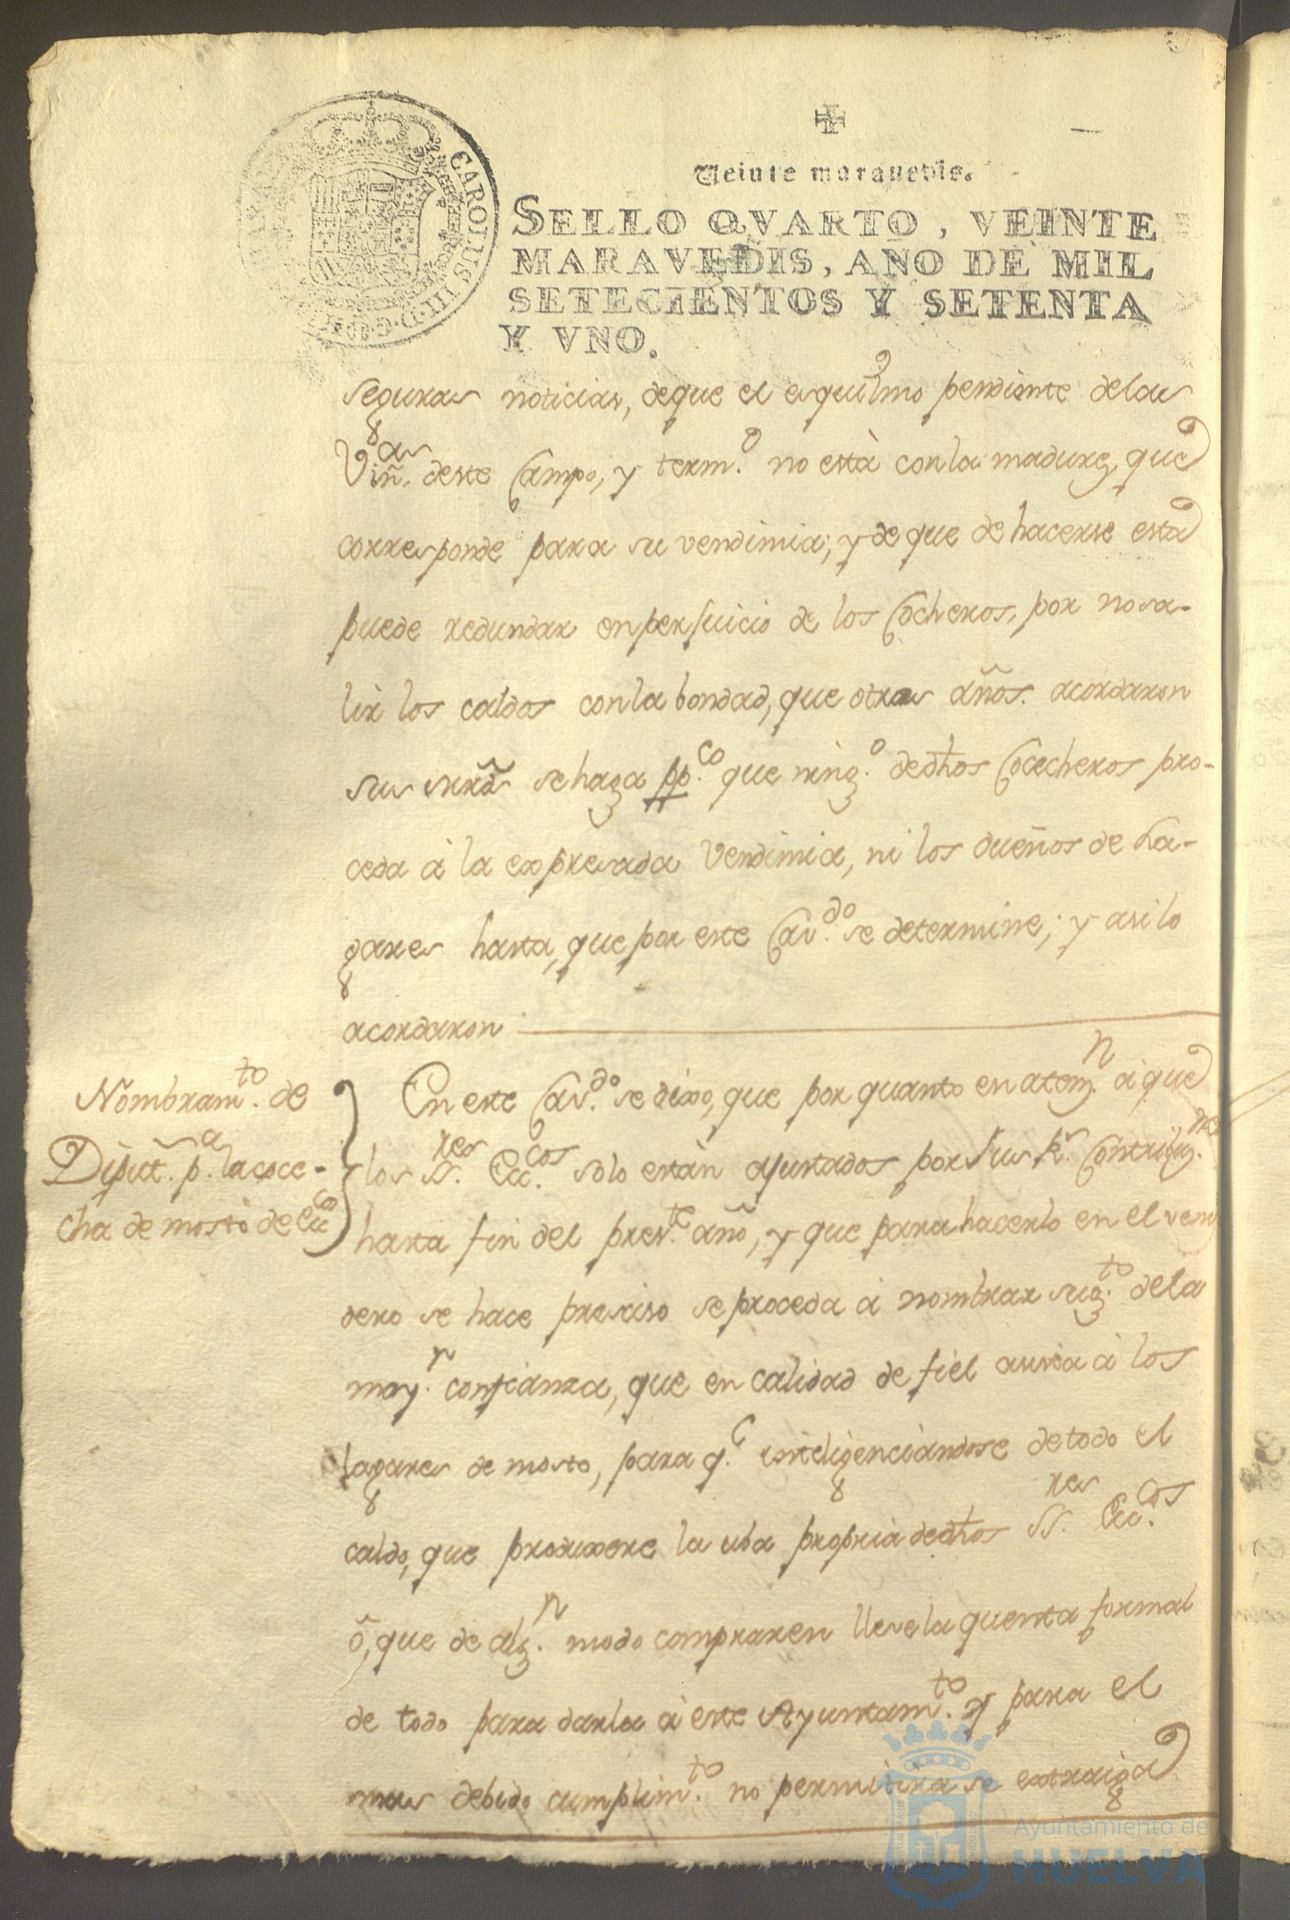 CAROLUS III D. G.
Veinte maravedis.
SELLO QVARTO, VEINTE
MARAVEDIS, AÑO DE MIL
SETECIENTOS Y SETENTA
Y VNO.
seguras noticias, deque el esquilmo pendiente delas
Viñ.as deste Campo, y term.o no està conla madurez, que
corresponde para su vendimia; y de que de hacerse esta
puede redundar enperjuicio de los Cocheros, por nosa-
lir los caldos conla bondad, que otros años. acordaron
sus mrds. sehaga pp.co que ning.o dedhos Cocecheros pro-
ceda à la expresada Vendimia, ni los dueños de La-
gares hasta, que por este Cav.do se determine; y asilo
acordaron
Nombram.to de
Diput. p.a la coce-
cha de mosto de Ecc.cos
En este Cav.do se dixo, que por quanto en atenz.n à que
los SS.res Ecc.cos solo están ajustados por sus R.s Contribuz.nes
hasta fin del pres.te año, y que para hacerlo en el veni
dero se hace presciso se proceda à nombrar sug.to dela
may.r confianza, que en calidad de fiel asista à los
lagares de mosto, para q.e inteligenciandose de todo el
caldo, que produxere la uba propria dedhos SS.res Ecc.cos
ò, que de alg.n modo compraren lleve la quenta formal
de todo para darla à este Ayuntam.to y para el
mas debido cumplim.to no permitirà se extraiga
Ayuntamiento de
HUELVA